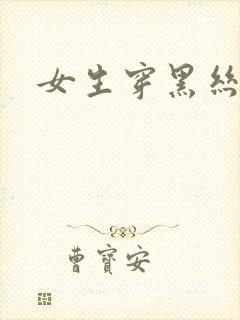 女生穿黑絲
曹寶安